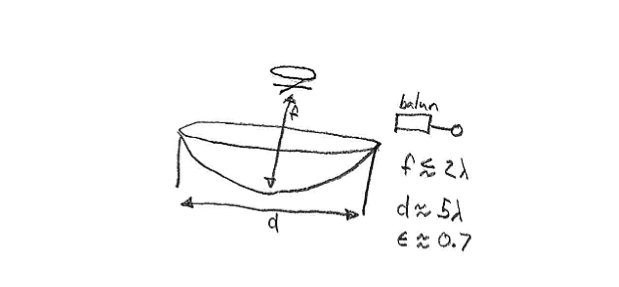 f
balun
f ⪅ 2λ
d ≈ 5λ
ϵ ≈ 0.7
d